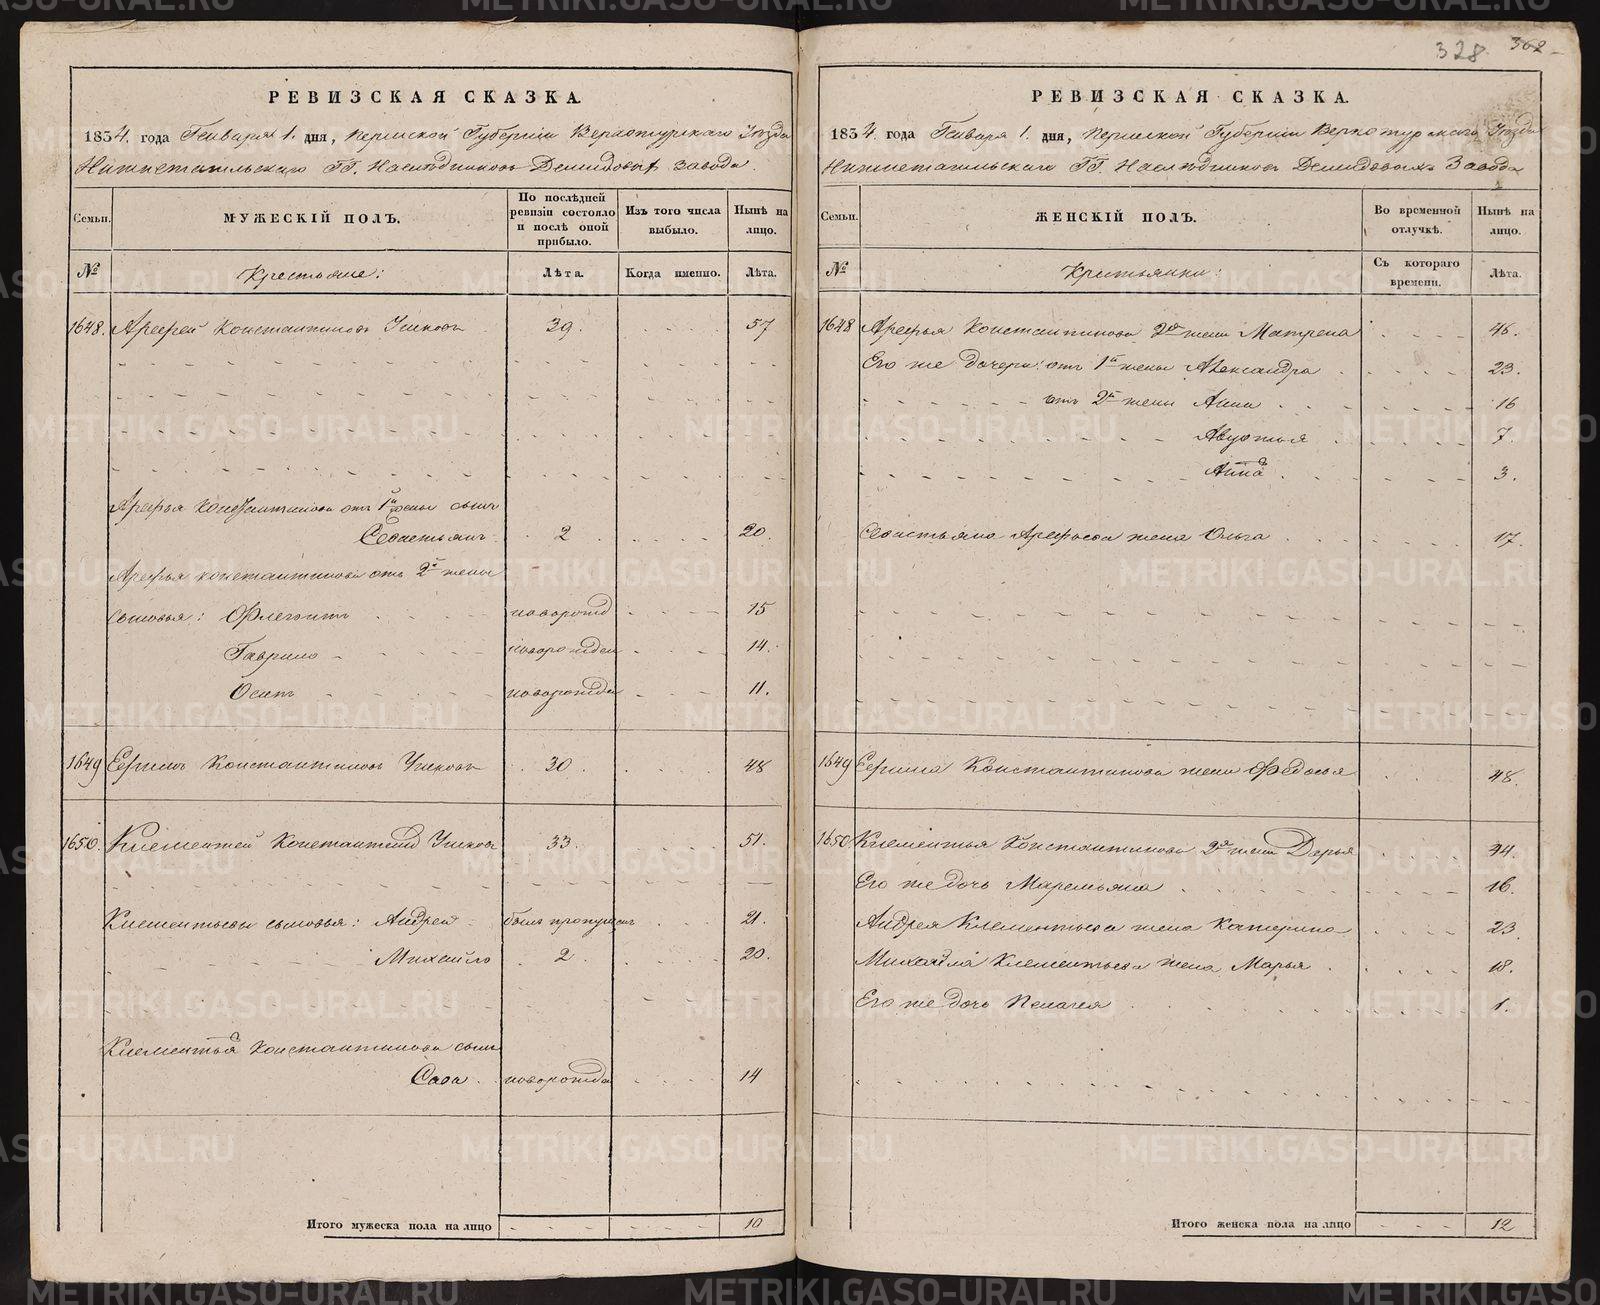 328 362
РЕВИЗСКАЯ СКАЗКА.
1834. года Генваря 1. дня, Пермской Губернии Верхотурскаго Уезда
Нижнетагильскаго ГГ. Наследниковъ Демидовыхъ завода
Семьи.
МУЖЕСКІЙ ПОЛЪ.
По послѣдней ревизіи состояло и послѣ оной прибыло.
Изъ того числа выбыло.
Нынѣ на лицо.
№
Крестьяне:
Лѣта.
Когда именно.
Лѣта.
1648. Арефей Константиновъ Ушковъ 39. 57
Арефья Константинова отъ 1й жены сынъ
Севастьянъ 2 20.
Арефья Константинова отъ 2й жены
сыновья: Флегонтъ новорожд 15
Гаврило новорожден 14.
Осипъ новорожден 11.
1649 Ефимъ Константиновъ Ушковъ 30. 48
1650. Клементей Константиновъ Ушковъ 33. 51.
Клементьевы сыновья: Андрей былъ пропущенъ 21.
Михайло 2. 20.
Клементья Константинова сынъ
Сава. новорожден 14
Итого мужеска пола на лицо 10
РЕВИЗСКАЯ СКАЗКА.
1834. года Генваря 1. дня, Пермской Губернии Верхотурскаго Уезда
Нижнетагильскаго ГГ. Наследниковъ Демидовыхъ Завода
Семьи.
ЖЕНСКІЙ ПОЛЪ.
Во временной отлучкѣ.
Нынѣ на лицо.
№
Крестьянки:
Съ котораго времени.
Лѣта.
1648 Арефья Константинова 2я жена Матрена 46.
Его же дочери: отъ 1й жены Александра 23.
отъ 2й жены Анна 16
Авдотья 7.
Анна 3.
Севастьяна Арефьева жена Ольга 17.
1649 Ефима Константинова жена Федосья 48.
1650 Клементья Константинова 2я жена Дарья 44.
Его же дочь Маремьяна 16.
Андрея Клементьева жена Катерина 23.
Михайла Клементьева жена Марья 18.
Его же дочь Пелагея 1.
Итого женска пола на лицо 12
METRIKI.GASO-URAL.RU